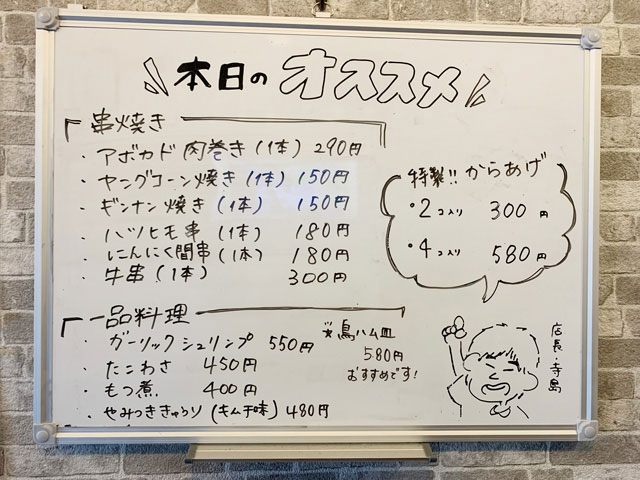 本日のオススメ
串焼き
・アボカド肉巻き(1本) 290円
・ヤングコーン焼き(1本) 150円
・ギンナン焼き(1本) 150円
・ハツヒモ串(1本) 180円
・にんにく間串(1本) 180円
・牛串(1本) 300円
特製!! からあげ
・2コ入り 300円
・4コ入り 580円
一品料理
・ガーリックシュリンプ 550円
・たこわさ 450円
・もつ煮 400円
・やみつききゅうり(キムチ味) 480円
☆鳥ハム皿
580円
おすすめです!
店長・寺島